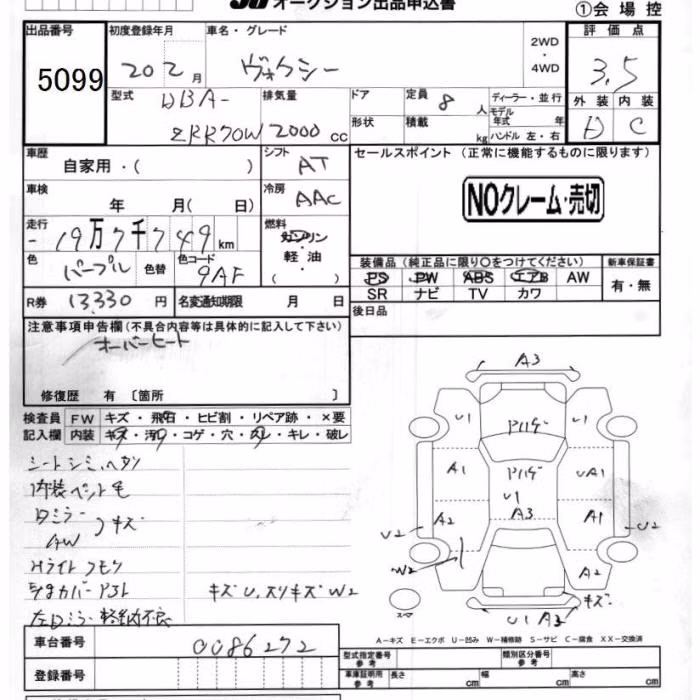 オークション出品申込書
①会場控
出品番号
5099
初度登録年月
20 2 月
車名・グレード
ヴォクシー
2WD
・
4WD
評価点
3.5
外装 内装
D C
型式
DBA-
ZRR70W
排気量
2000 cc
ドア
形状
定員 8 人
積載 kg
ディーラー・並行
モデル年式 年
ハンドル 左・右
車歴
自家用・( )
車検
年 月( 日)
走行
19万7千749 km
色
パープル
色替
色コード
9AF
R券 13,330 円
名変通知期限 月 日
シフト
AT
冷房
AAC
燃料
ガソリン
軽油
( )
セールスポイント (正常に機能するものに限ります)
NOクレーム・売切
装備品 (純正品に限り〇をつけてください)
PS PW ABS エアB AW
SR ナビ TV カワ
新車保証書
有・無
後日品
注意事項申告欄(不具合内容等は具体的に記入して下さい)
オーバーヒート
修復歴 有 〔箇所 〕
検査員記入欄
FW キズ・飛石・ヒビ割・リペア跡・×要
内装 キズ・汚れ・コゲ・穴・スレ・キレ・破レ
シートシミ、ヘタリ
内装ペット毛
Dミラー
AW
キズ
Hライトクモリ
キズU,スリキズW2
左Dミラー格納不良
A3
U1 U1
A1 UA1
U1
A3
A2 A1
U2 U2
W2
A2
キズ
U1 A3
A-キズ E-エクボ U-凹み W-補修跡 S-サビ C-腐食 XX-交換済
車台番号
0086272
登録番号
型式指定番号
参考
類別区分番号
参考
車庫証明用
参考
長さ cm
幅 cm
高さ cm